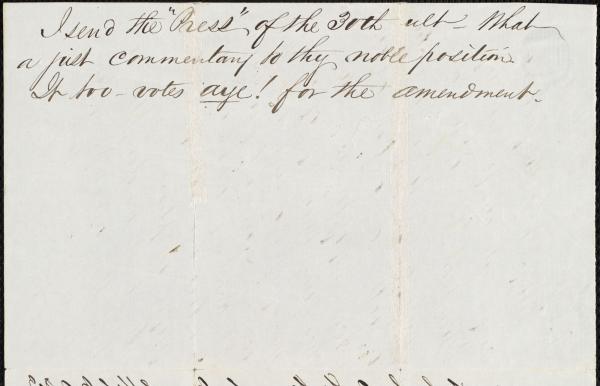 I send the "Press" of the 30th ult - What
a just commentary to thy noble position
It too - votes aye! for the amendment.